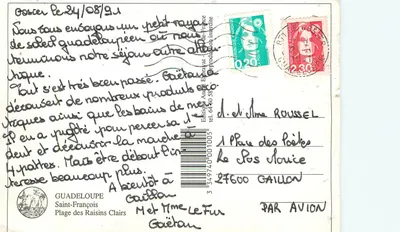 Gosier le 24/08/91
Nous vous envoyons un petit rayon
de soleil guadeloupéen où nous
terminons notre séjour outre atlan-
tique.
Tout s'est très bien passé. Gaëtan a
découvert de nombreux produits exo-
tiques ainsi que les bains de mer.
Il en a profité pour percer sa 1
dent et découvrir la marche à
4 pattes. Mais être debout l'in-
téresse beaucoup plus.
A bientôt à
Gaillon
M et Mme Le Fur
Gaëtan
GUADELOUPE
Saint-François
Plage des Raisins Clairs
0,20
2,30
3 349740 001005
M. et Mme ROUSSEL
1 Place des Poètes
Le Clos
27600 GAILLON
PAR AVION